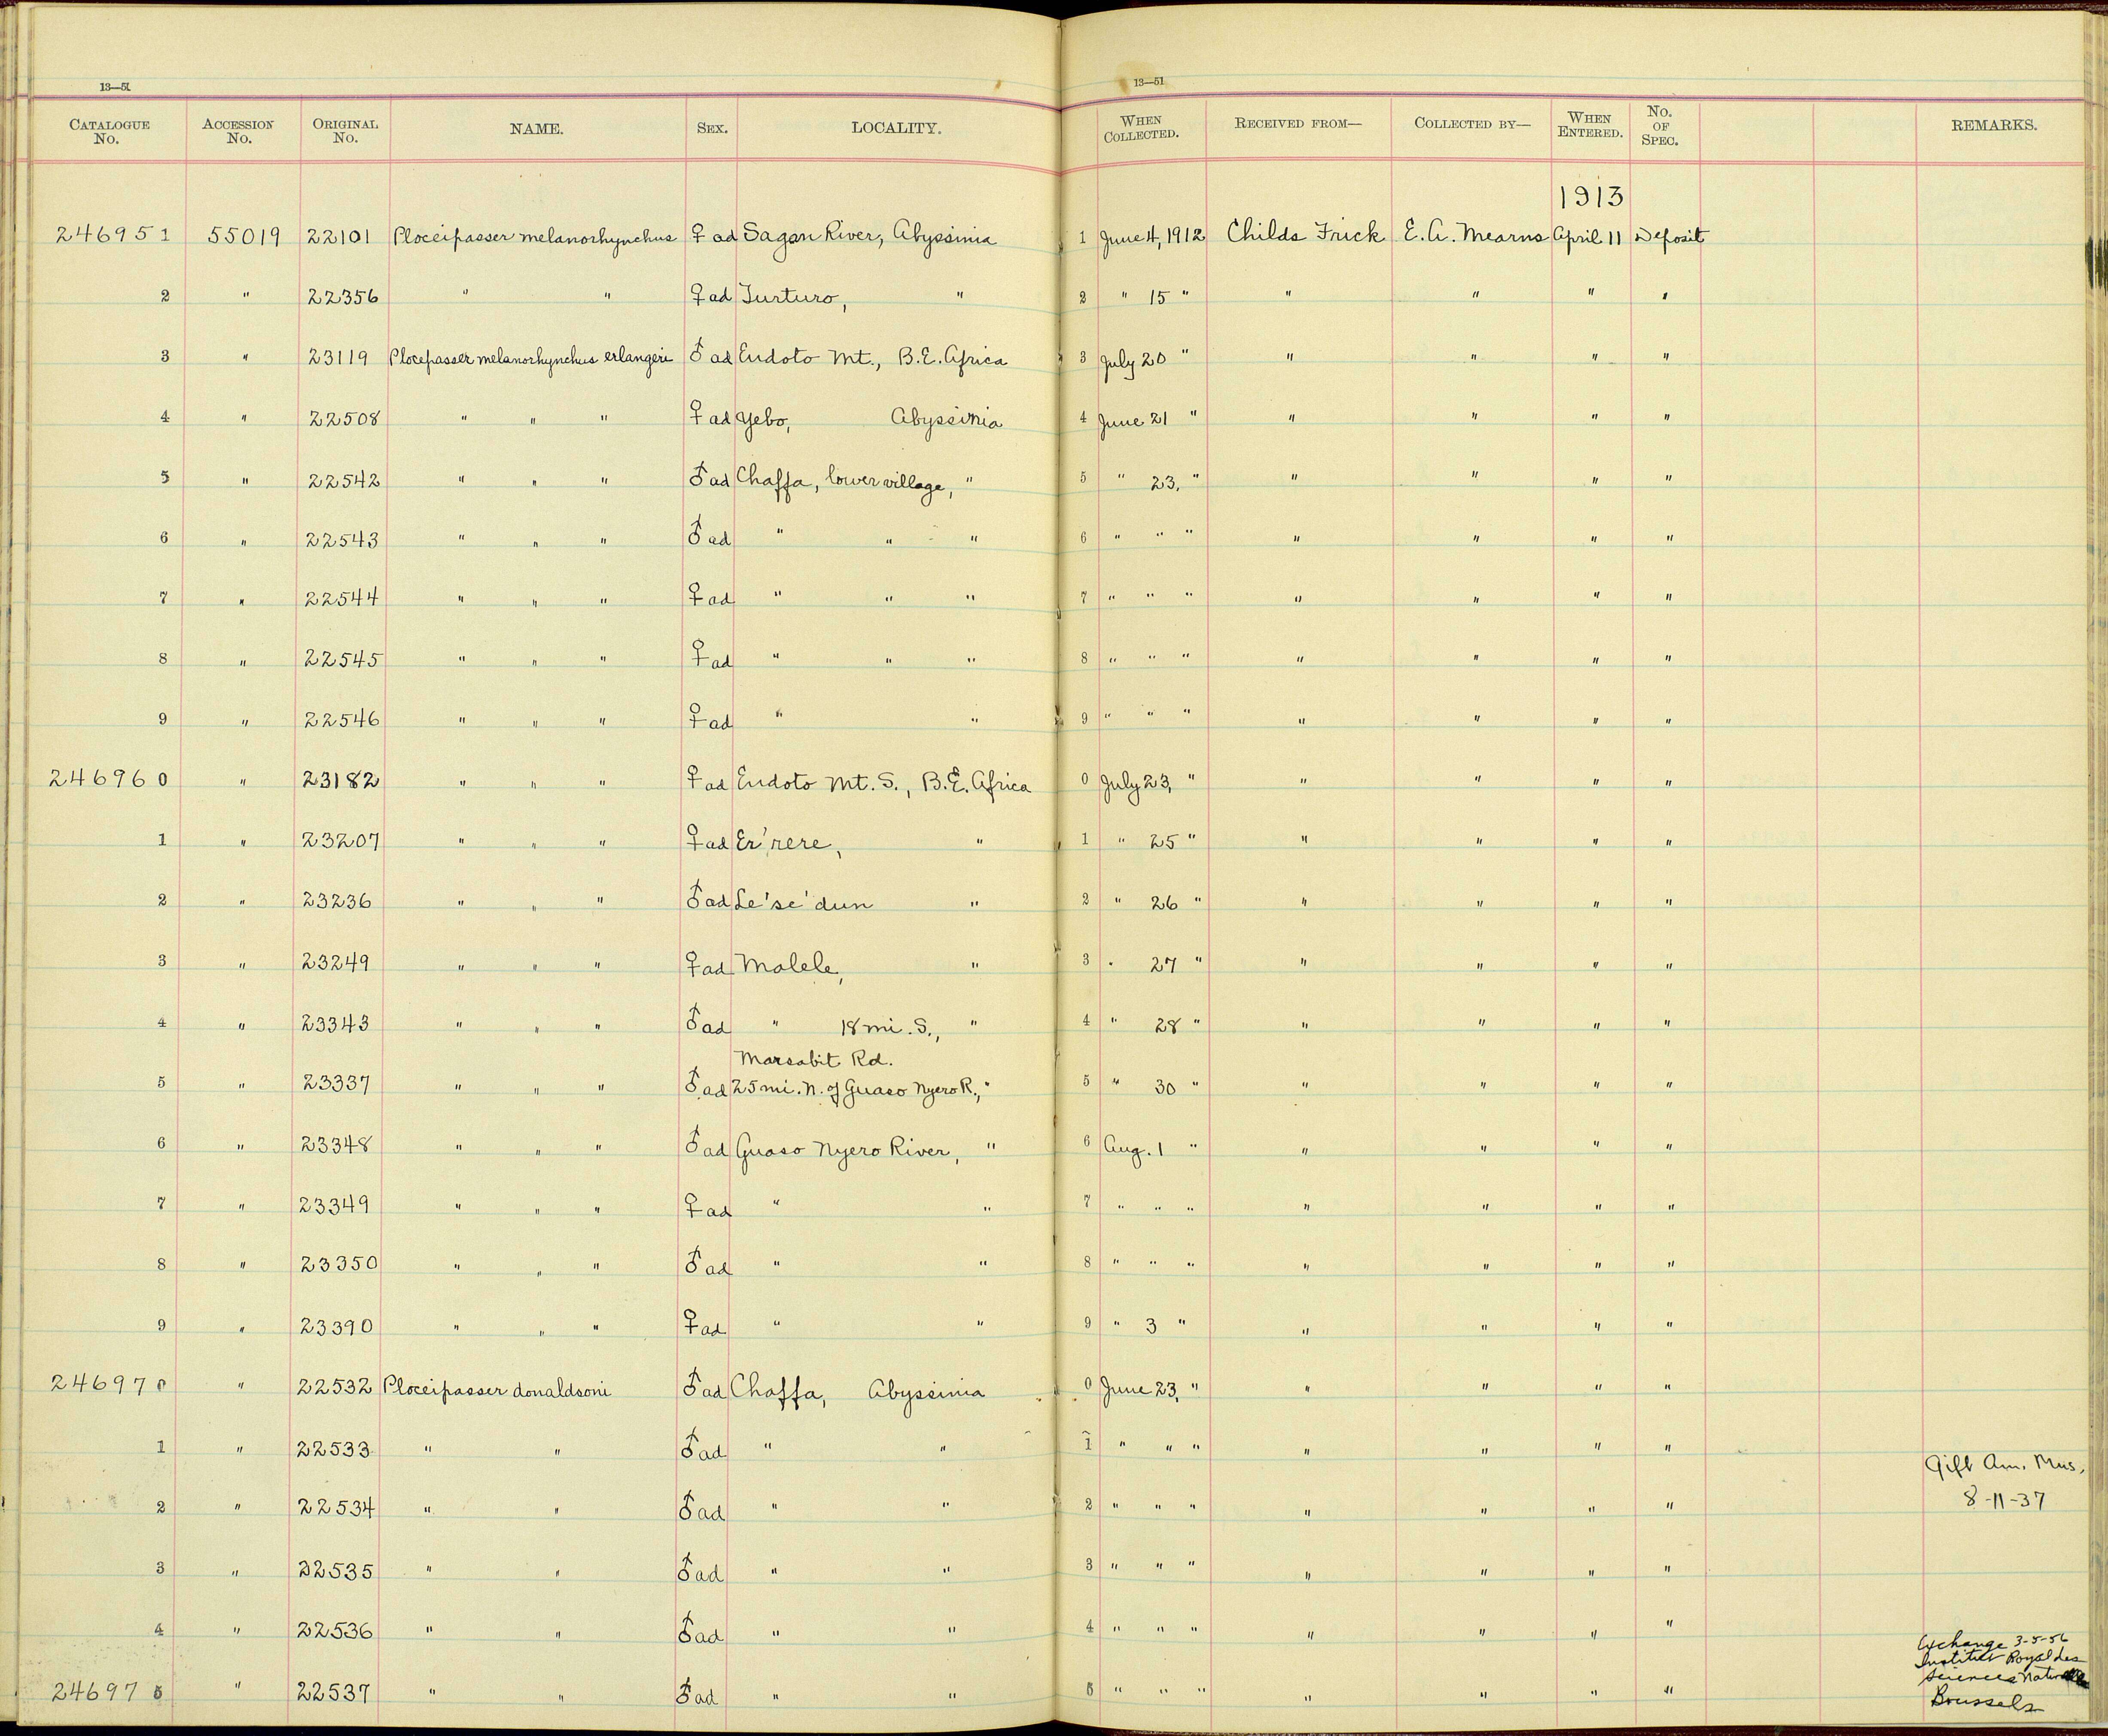 13—51 13—51
CATALOGUE No. ACCESSION No. ORIGINAL No. NAME. SEX. LOCALITY. WHEN COLLECTED. RECEIVED FROM— COLLECTED BY— WHEN ENTERED. No. OF SPEC. REMARKS.
1913
246951 55019 22101 Ploceipasser melanorhynchus ♀ ad Sagan River, Abyssinia 1 June 4, 1912 Childs Frick E. A. Mearns April 11 Deposit
2 " 22356 " " ♀ ad Turturo, " 2 " 15 " " " " "
3 " 23119 Plocepasser melanorhynchus erlangeri ♂ ad Endoto Mt., B.E. Africa 3 July 20 " " " " "
4 " 22508 " " " ♀ ad Yebo, Abyssinia 4 June 21 " " " " "
5 " 22542 " " " ♂ ad Chaffa, lower village, " 5 " 23, " " " " "
6 " 22543 " " " ♂ ad " " " 6 " " " " " " "
7 " 22544 " " " ♀ ad " " " 7 " " " " " " "
8 " 22545 " " " ♀ ad " " " 8 " " " " " " "
9 " 22546 " " " ♀ ad " " 9 " " " " " " "
246960 " 23182 " " " ♀ ad Endoto Mt. S., B.E. Africa 0 July 23, " " " " "
1 " 23207 " " " ♀ ad Er'rere, " 1 " 25 " " " " "
2 " 23236 " " " ♂ ad Le'se'dun " 2 " 26 " " " " "
3 " 23249 " " " ♀ ad Malele, " 3 " 27 " " " " "
4 " 23343 " " " ♂ ad " 18 mi. S., " 4 " 28 " " " " "
Marsabit Rd.
5 " 23337 " " " ♂ ad 25 mi. N. of Guaso Nyero R., " 5 " 30 " " " " "
6 " 23348 " " " ♂ ad Guaso Nyero River, " 6 Aug. 1 " " " " "
7 " 23349 " " " ♀ ad " " 7 " " " " " " "
8 " 23350 " " " ♂ ad " " 8 " " " " " " "
9 " 23390 " " " ♀ ad " " 9 " 3 " " " " "
246970 " 22532 Ploceipasser donaldsoni ♂ ad Chaffa, Abyssinia 0 June 23, " " " " "
1 " 22533 " " ♂ ad " " 1 " " " " " " "
Gift Am. Mus.
2 " 22534 " " ♂ ad " " 2 " " " " " " " 8-11-37
3 " 22535 " " ♂ ad " " 3 " " " " " " "
4 " 22536 " " ♂ ad " " 4 " " " " " " "
Exchange 3-5-56
Institut Royal des
Sciences Naturelle
246975 " 22537 " " ♂ ad " " 5 " " " " " " " Brussels